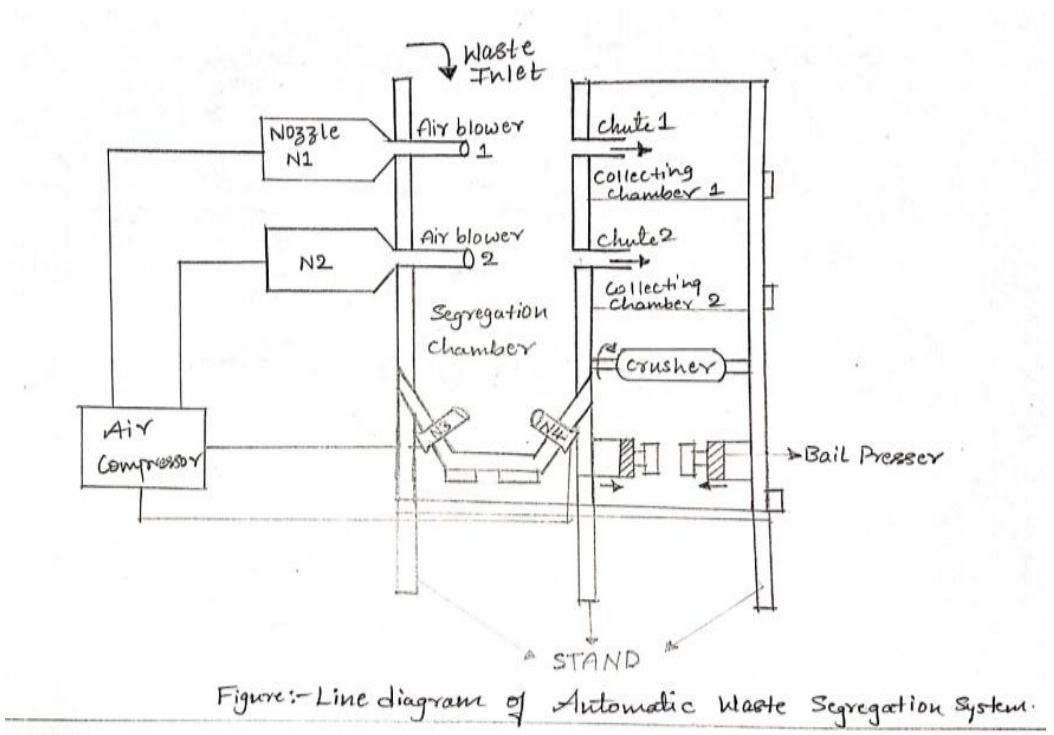 Waste
Inlet
Nozzle
N1
Air blower
1
Chute 1
Collecting
Chamber 1
N2
Air blower
2
Chute 2
Collecting
Chamber 2
Segregation
Chamber
Crusher
Air
Compressor
N3
N4
Bail Presser
STAND
Figure:- Line diagram of Automatic Waste Segregation System.